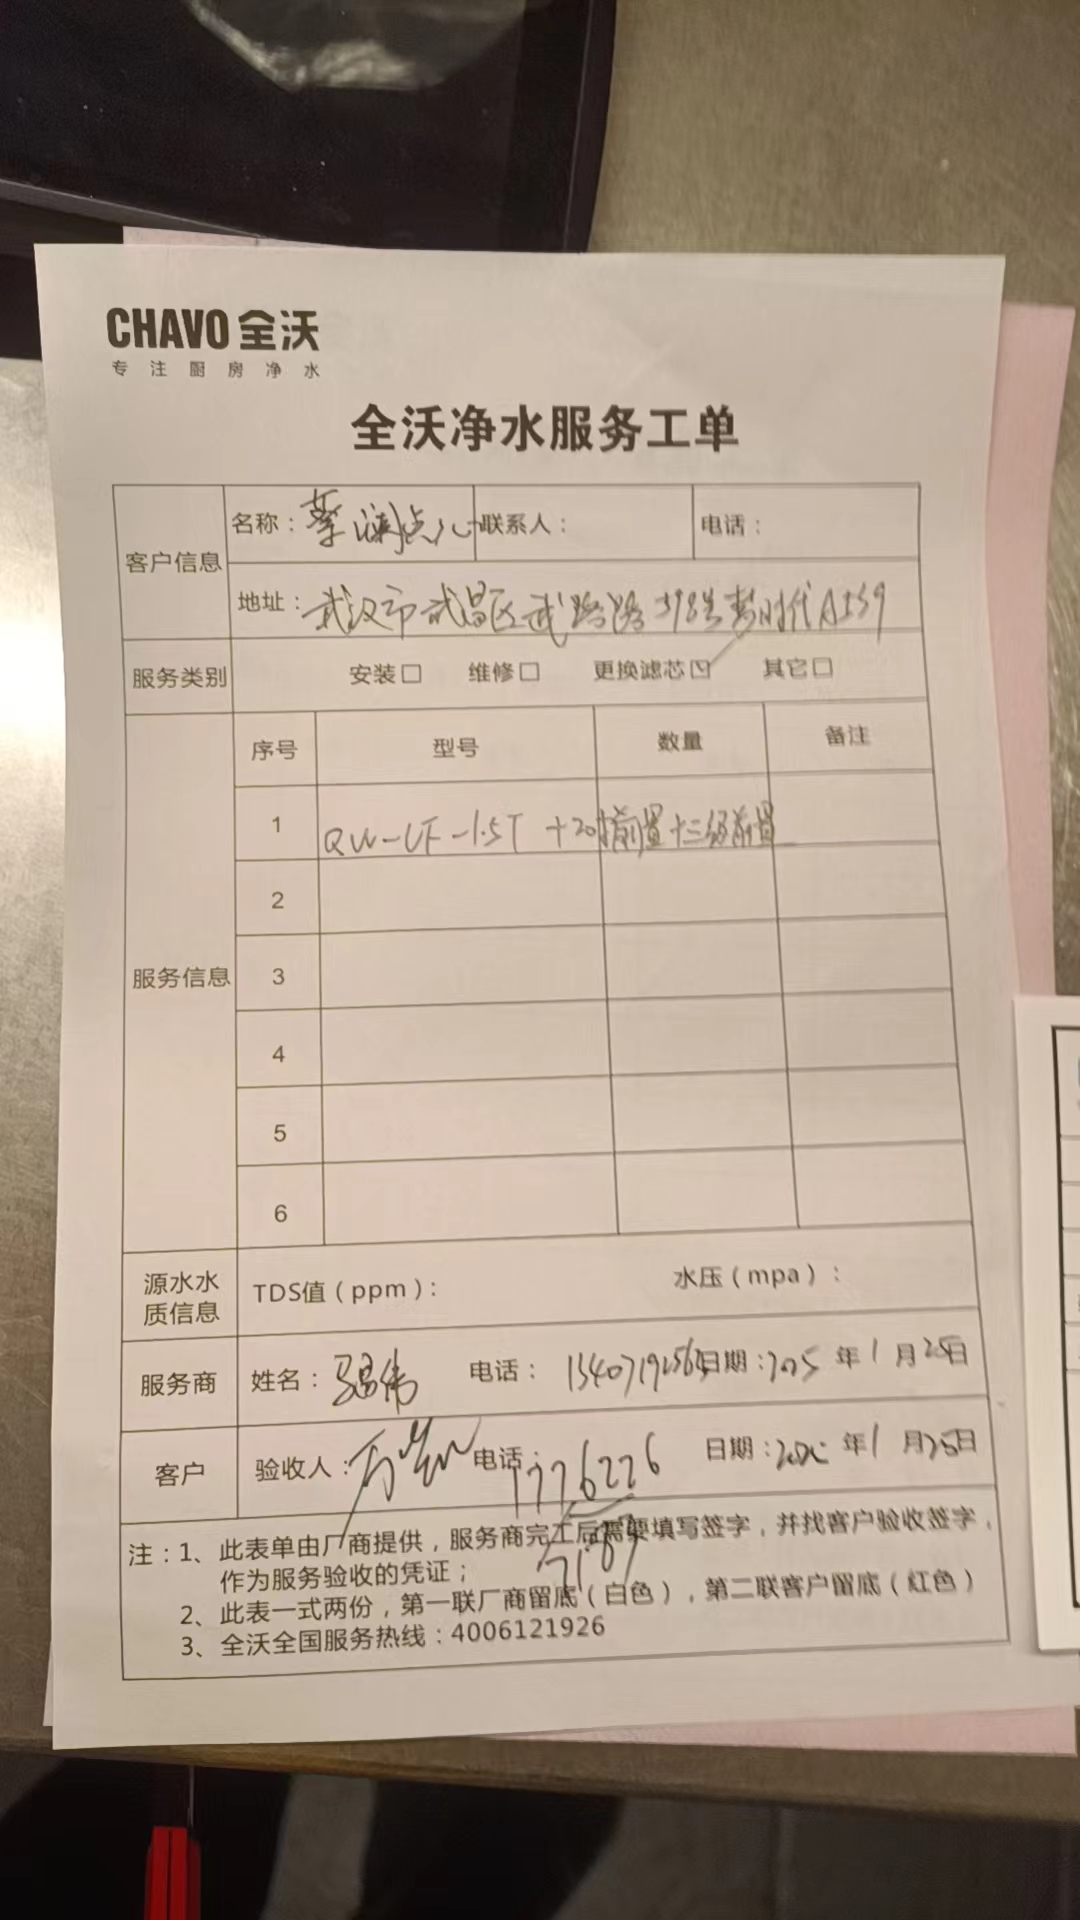 CHAVO 全沃
专注厨房净水
全沃净水服务工单
客户信息
名称：蔡澜点心 联系人： 电话：
地址：武汉市武昌区武珞路 梦时代A559
服务类别 安装□ 维修□ 更换滤芯☑ 其它□
服务信息
序号 型号 数量 备注
1 QW-UF-1.5T +20寸前置+三级前置
2
3
4
5
6
源水水质信息 TDS值（ppm）： 水压（mpa）：
服务商 姓名： 电话： 日期：2025年1月25日
客户 验收人： 电话：1776226 日期： 年1月25日
7187
注：1、此表单由厂商提供，服务商完工后需要填写签字，并找客户验收签字，
作为服务验收的凭证；
2、此表一式两份，第一联厂商留底（白色），第二联客户留底（红色）
3、全沃全国服务热线：4006121926